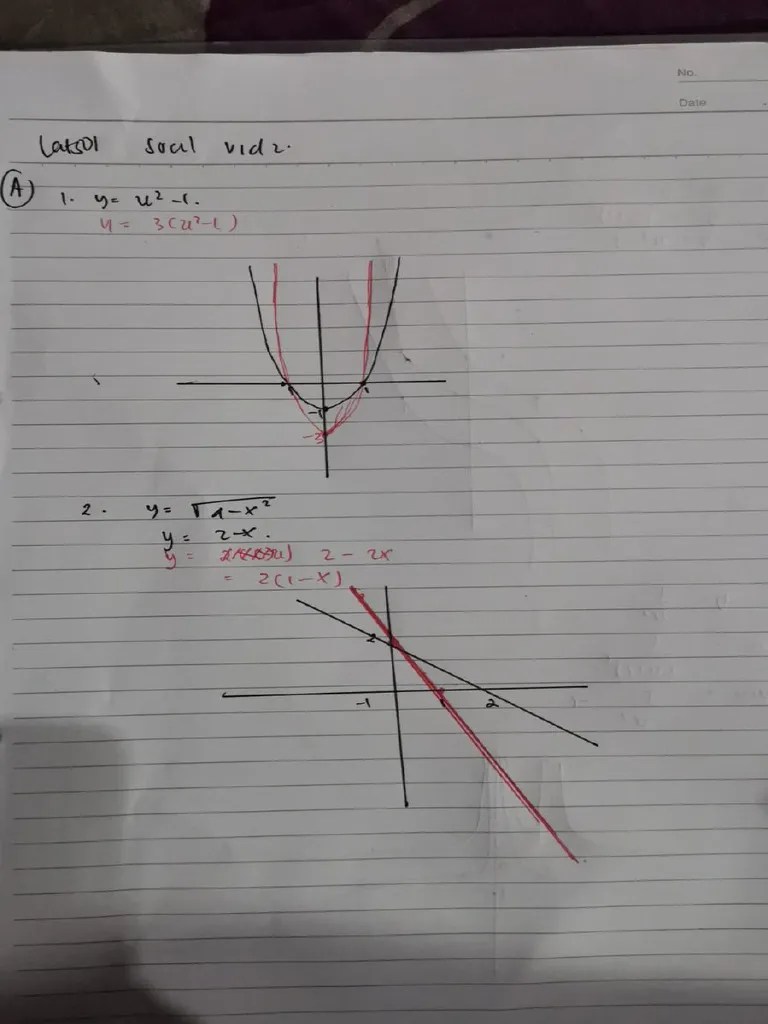 No.
Date
Latsol soal vid 2.
A 1. y = x² - 1.
y = 3(x² - 1)
1
-1
-3
2. y = √4-x²
y = 2-x.
y = 2 - 2x
= 2(1-x)
2
-1 1 2